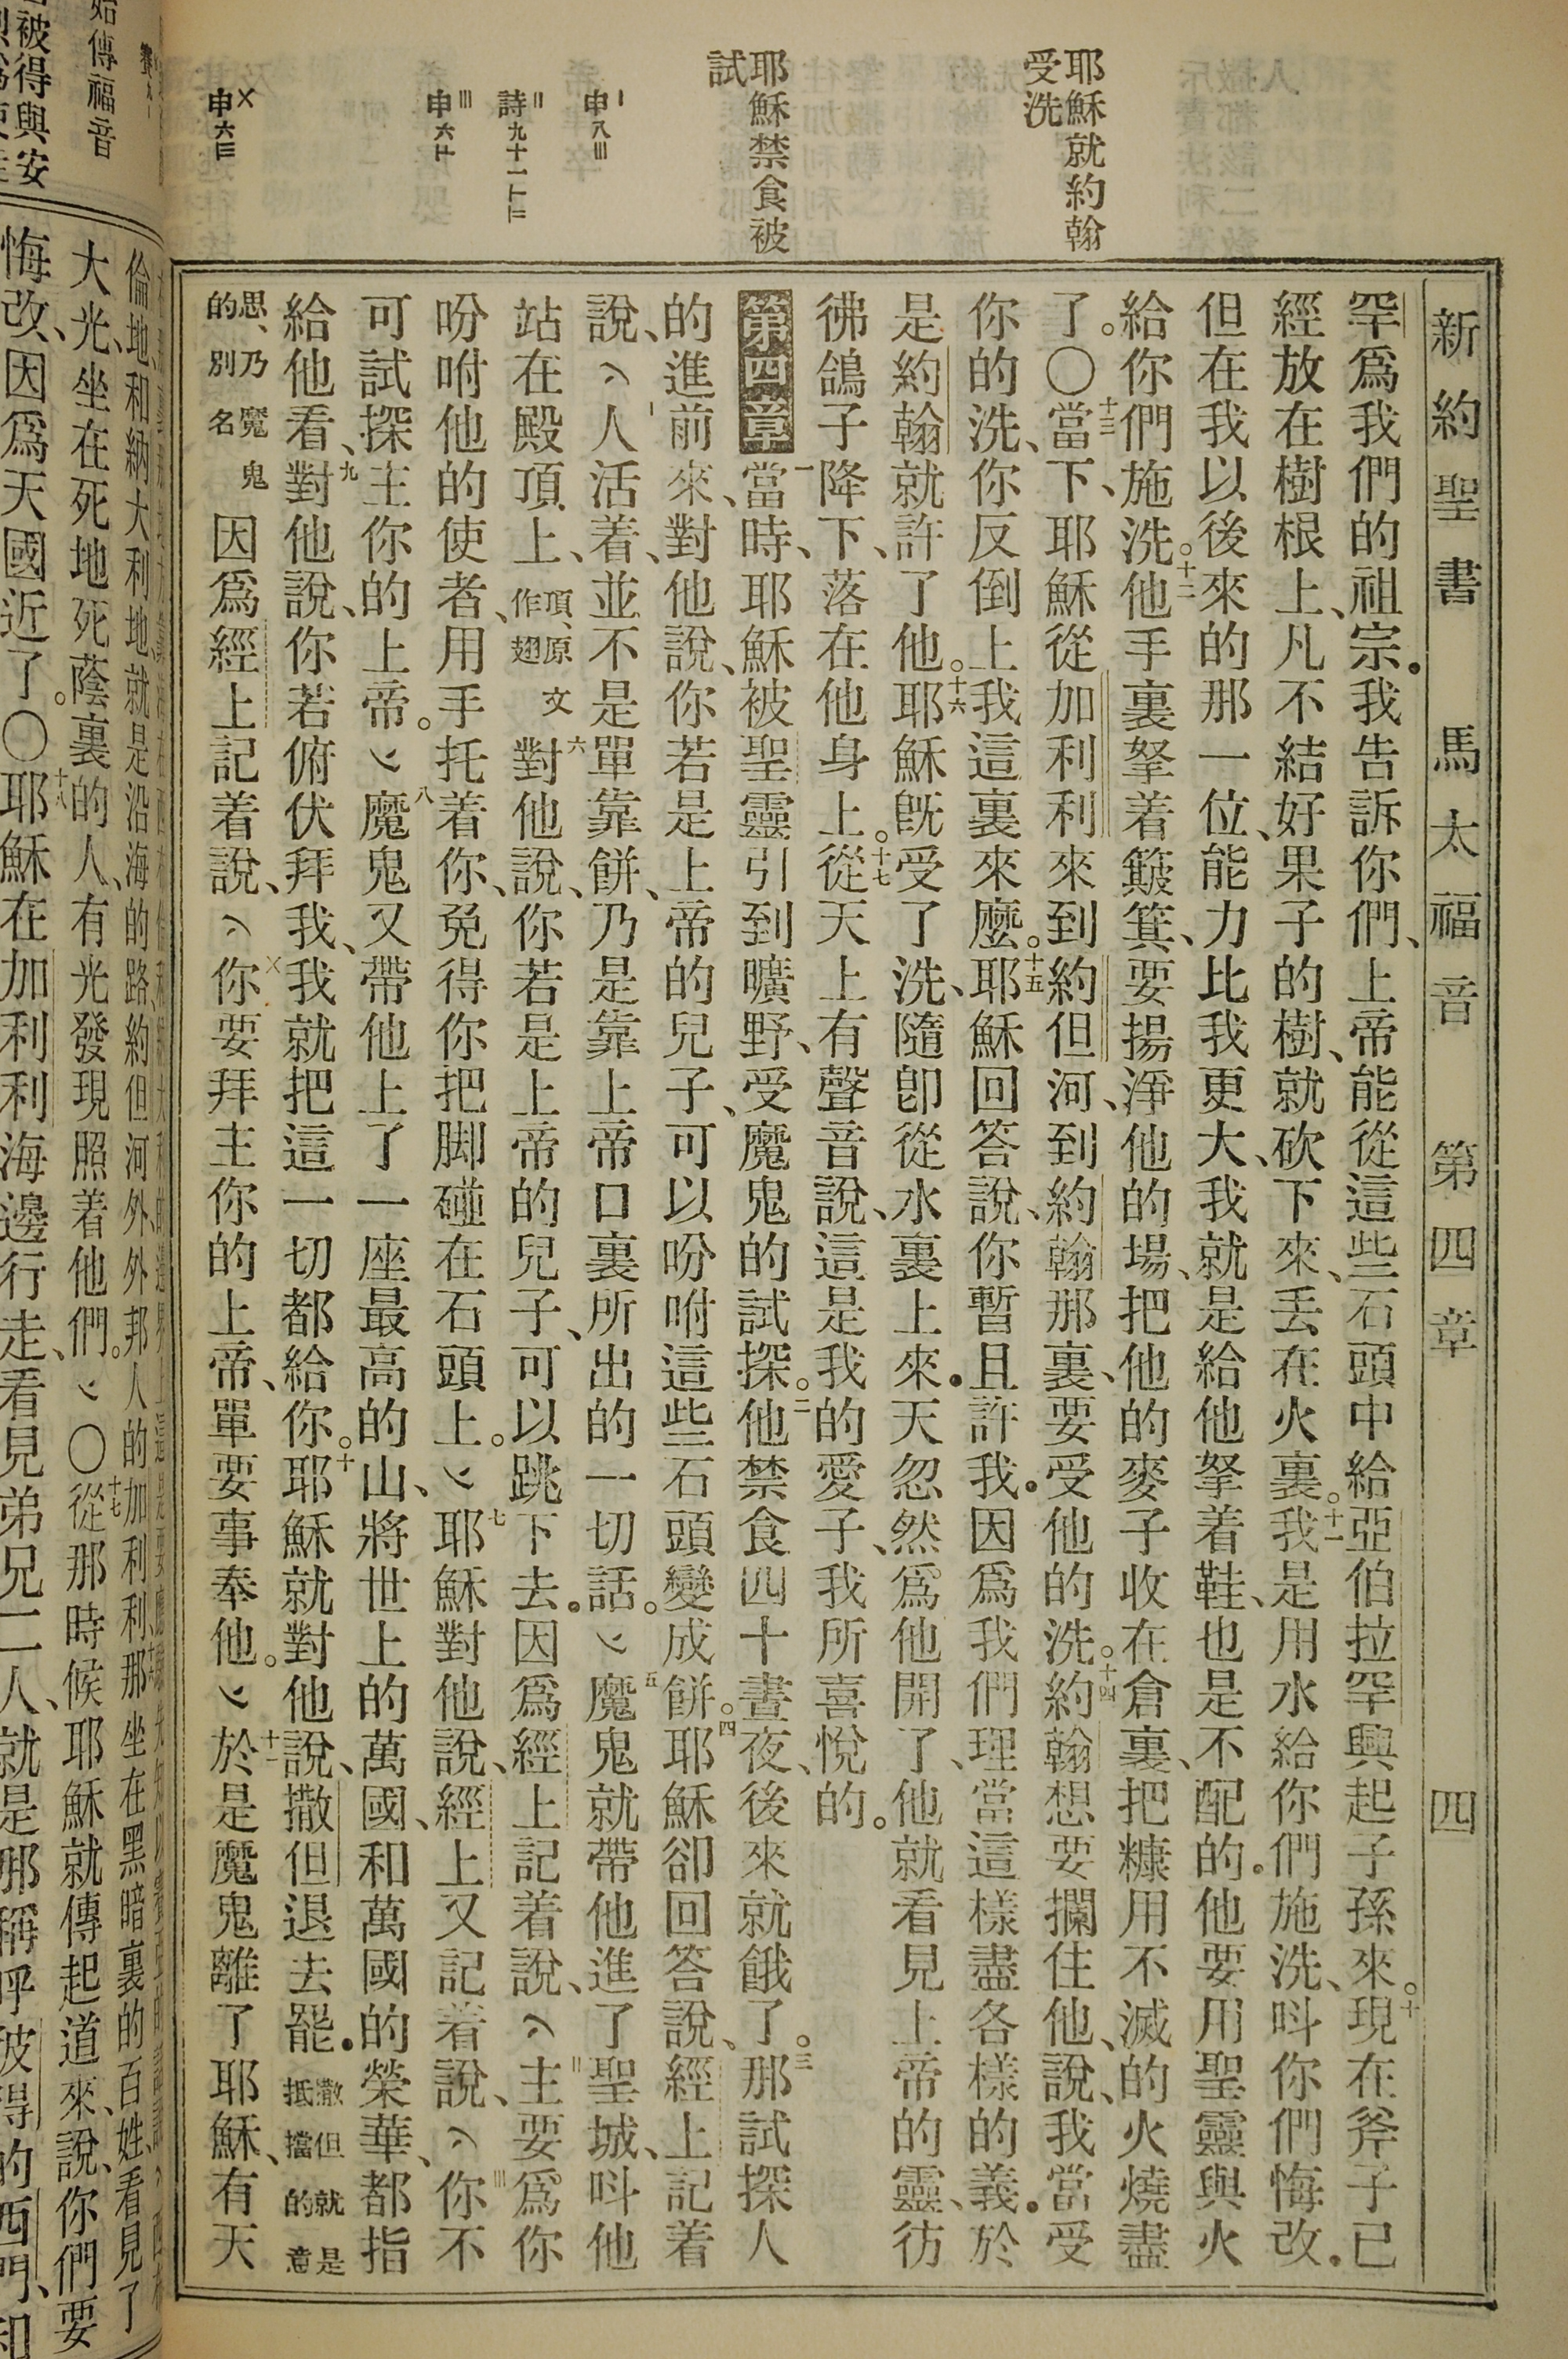 新約聖書 馬太福音 第四章 四
耶穌就約翰
受洗
耶穌禁食被
試
一申八三
二詩九十一十一十二
三申六十六
X申六十三
罕爲我們的祖宗．我告訴你們、上帝能從這些石頭中給亞伯拉罕興起子孫來。十現在斧子已
經放在樹根上、凡不結好果子的樹、就砍下來、丢在火裏。十一我是用水給你們施洗、呌你們悔改．
但在我以後來的那一位、能力比我更大、我就是給他拏着鞋、也是不配的．他要用聖靈與火
給你們施洗。十二他手裏拏着簸箕、要揚淨他的場、把他的麥子收在倉裏、把糠用不滅的火燒盡
了。〇十三當下、耶穌從加利利來到約但河、到約翰那裏、要受他的洗。十四約翰想要攔住他、說、我當受
你的洗、你反倒上我這裏來麽。十五耶穌回答說、你暫且許我．因爲我們理當這樣盡各樣的義．於
是約翰就許了他。十六耶穌旣受了洗、隨卽從水裏上來．天忽然爲他開了、他就看見上帝的靈、彷
彿鴿子降下、落在他身上。十七從天上有聲音說、這是我的愛子、我所喜悅的。
第四章 一當時、耶穌被聖靈引到曠野、受魔鬼的試探。二他禁食四十晝夜、後來就餓了。三那試探人
的進前來、對他說、你若是上帝的兒子、可以吩咐這些石頭變成餅。四耶穌卻回答說、經上記着
說、︵一人活着、並不是單靠餅、乃是靠上帝口裏所出的一切話。︶五魔鬼就帶他進了聖城、呌他
站在殿頂上、頂、原文作翅 六對他說、你若是上帝的兒子、可以跳下去．因爲經上記着說、︵二主要爲你
吩咐他的使者、用手托着你、免得你把脚碰在石頭上。︶七耶穌對他說、經上又記着說、︵三你不
可試探主你的上帝。︶八魔鬼又帶他上了一座最高的山、將世上的萬國、和萬國的榮華、都指
給他看、九對他說、你若俯伏拜我、我就把這一切都給你。十耶穌就對他說、撒但退去罷．撒但就是抵擋的意
思、乃魔鬼的別名 因爲經上記着說、︵X你要拜主你的上帝、單要事奉他。︶十一於是魔鬼離了耶穌、有天
倫地、和納大利地、就是沿海的路、約但河外、外邦人的加利利、十六那坐在黑暗裏的百姓、看見了
大光、坐在死地死蔭裏的人、有光發現照着他們。︶〇十七從那時候耶穌就傳起道來、說、你們要
悔改、因爲天國近了。〇十八耶穌在加利利海邊行走、看見弟兄二人、就是那稱呼彼得的西門、和